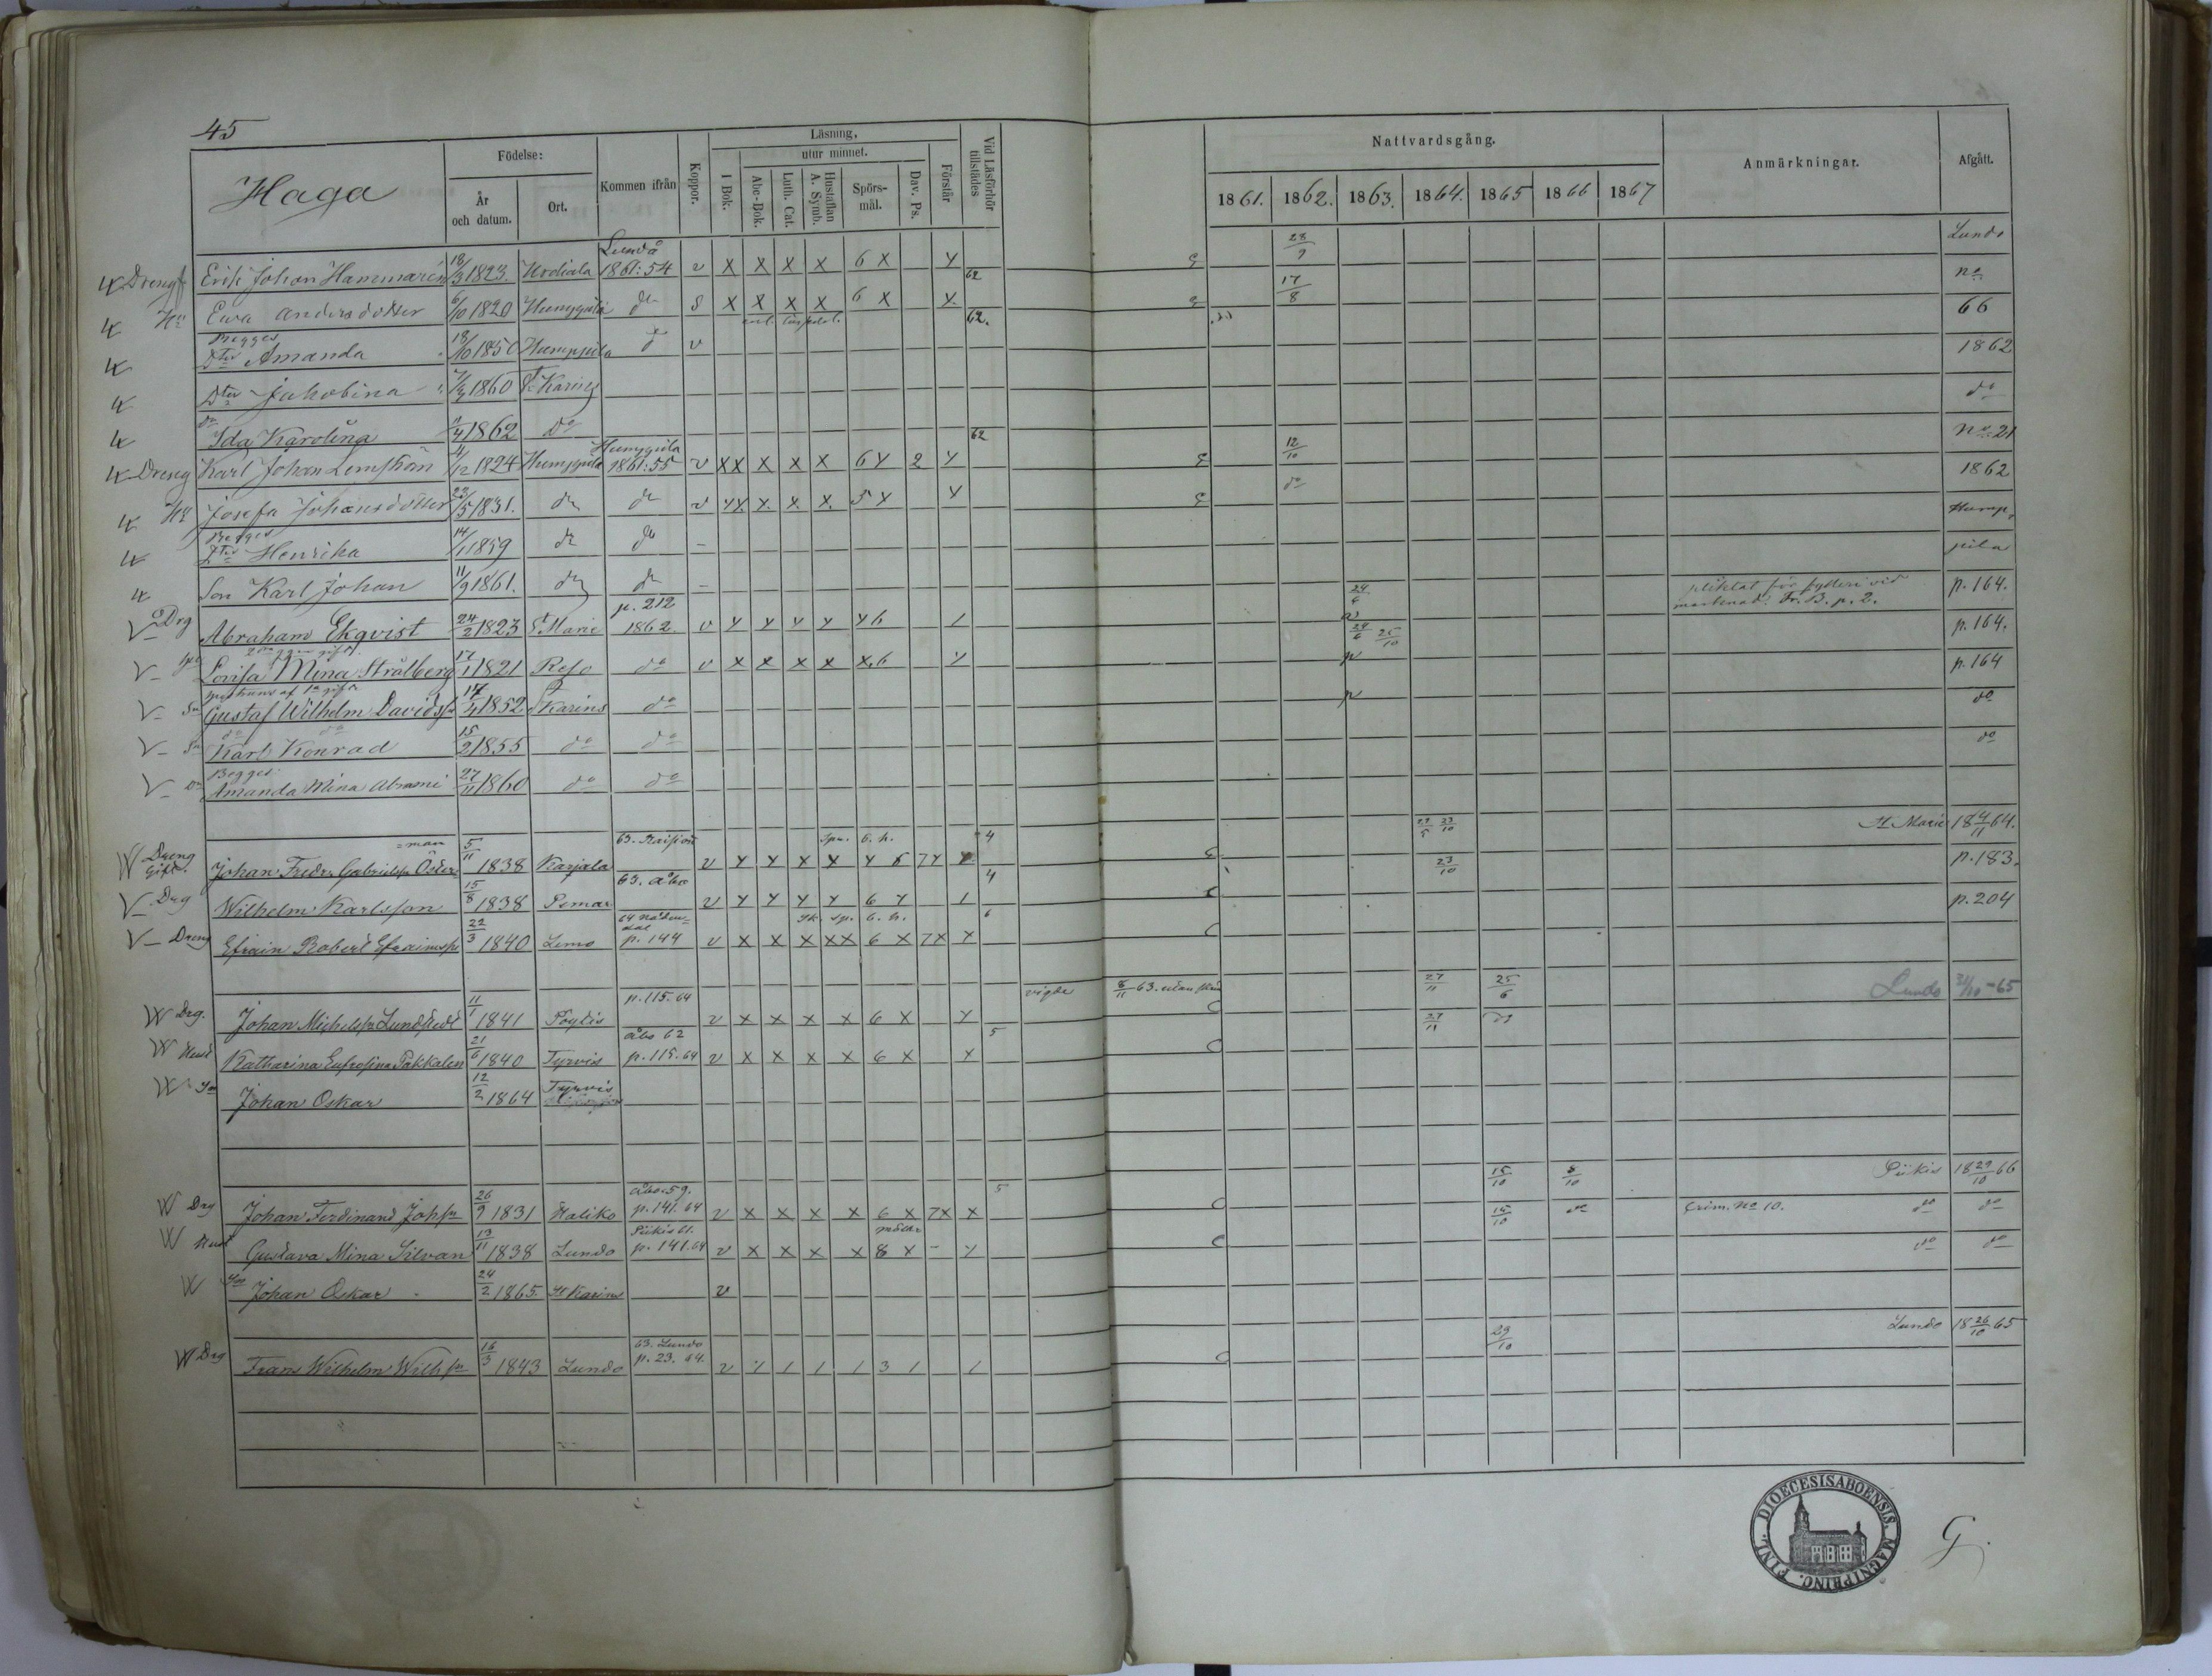 45
Haga
Födelse:
År och datum.
Ort.
Kommen ifrån
Koppor.
Läsning,
utur minnet.
I Bok.
Abc-Bok.
Luth. Cat.
Hustaflan A. Symb.
Spörs-mål.
Dav. Ps.
Förstår
Vid Läsförhör tillstädes
Nattvardsgång.
1861. 1862. 1863. 1864. 1865 1866 1867
Anmärkningar.
Afgått.
Dreng Erik Johan Hammarén 18/3 1823. Urdiala Lundo 1861:54 v X X X X 6 X Y 62 28/9 Lundo
Hu Ewa Andersdotter 6/10 1820 Humppila do S X X X X 6 X Y 62. 17/8 no 66
Begges Dter Amanda 18/10 1850 Humppila do v 1862
Dter Jakobina 1860 St Karins do
do Ida Karolina 11/4 1862 do
Dreng Karl Johan 4/12 1824 Humppila Humppila 1861:55 v XX X X X 6 Y 2 Y 62 12/10 no 21
Hu Josefa Johansdotter 23/5 1831. do do v YX X X X 5 Y Y do 1862
Begges Dter Henrika 14/1 1859 do do - Humppila
Son Karl Johan 11/9 1861. do do -
Drg Abraham Ekqvist 24/2 1823 St Marie p. 212 1862. v Y Y Y Y Y 6 1 24/6 pliktat för fylleri vid marknad. Fr. B. p. 2. p. 164.
Lovisa Mina Strålberg 17/1 1821 Reso do v X X X X X.6 Y 24/6 25/10 p. 164.
Sn Gustaf Wilhelm Davidsn 17/4 1852 St Karins do p. 164
do do
Sn Karl Konrad 15/2 1855 do do do
Begges
Dr Amanda Mina Abrami 27/11 1860 do do do
Dreng Gift. Johan Fredr. Gabrielsn Österman 5/11 1838 Karjala 63. v Y Y X X Y 6 7Y Y 4 23/10 St Marie 18 4/11 64.
Drg Wilhelm Karlsson 15/8 1838 Pemar 63. Åbo v Y Y Y Y 6 Y 1 4 23/10 p. 183.
Dreng Efraim Robert Efraimsn 22/3 1840 Lemo 64 Nådendal p. 144 v X X X XX 6 X 7X X 6 p. 204
vigde 8/11 63.
Drg. Johan Michelsn Lundstedt 11/1 1841 Pöytis p. 115. 64 v X X X X 6 X Y 27/11 25/6 Lundo 21/10-65
Hust Katharina Eufrosina Pakkalen 21/6 1840 Tyrvis Åbo 62 p. 115. 64 v X X X X 6 X Y 5 27/11 do
Sn Johan Oskar 12/2 1864 Tyrvis
Drg Johan Ferdinand Johsn 26/9 1831 Haliko Åbo. 59. p. 141. 64 v X X X X 6 X 7X X 5 15/10 8/10 Piikis 18 29/10 66
Hust Gustava Mina Silvan 13/11 1838 Lundo Piikis 61. p. 141. 64 v X X X X 8 X - Y 15/10 do Crim. No 10. do do
Son Johan Oskar 24/2 1865. St Karins v do do
Drg Frans Wilhelm Wilhsn 16/3 1843 Lundo 63. Lundo p. 23. 64. v 1 1 1 1 3 1 1 29/10 Lundo 18 26/10 65
FINL. DIOECESIS ABOENSIS. MAGNI PRINC.
G.